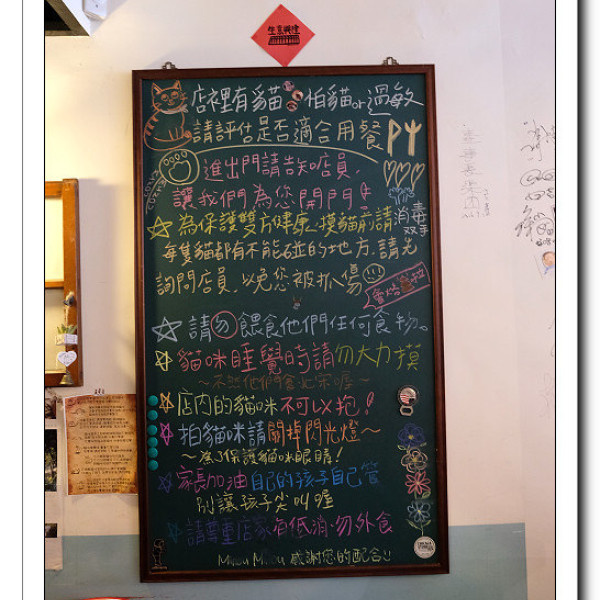 店裡有貓 怕貓or過敏
請評估是否適合用餐
進出門請告知店員.
讓我們為您開門!
為保護雙方健康.摸貓前請消毒双手
每隻貓都有不能碰的地方.請先
詢問店員.以免您被抓傷
請勿餵食他們任何食物。
貓咪睡覺時請勿大力摸
店內的貓咪不可以抱!
拍貓咪請關掉閃光燈~
~為了保護貓咪眼睛!
家長加油自己的孩子自己管
別讓孩子尖叫喔
請尊重店家有低消.勿外食
感謝您的配合!!